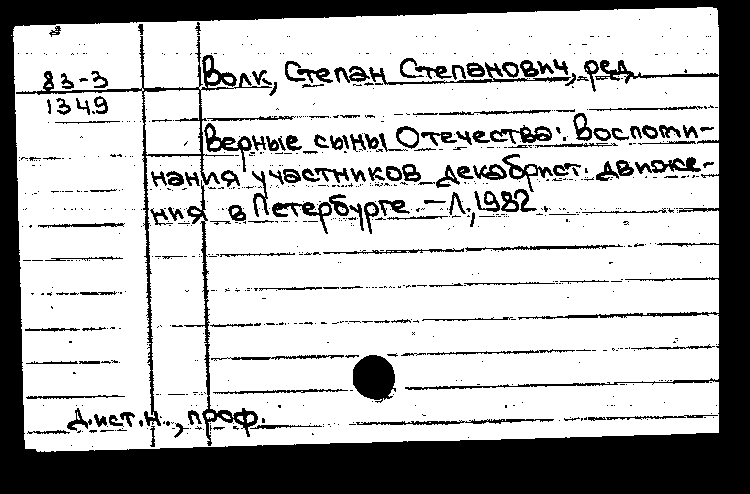 83-3
1349
Волк, Степан Степанович, ред.
Верные сыны Отечества: Воспоми-
нания участников декабрист. движе-
ния в Петербурге. - Л., 1982.
Д.ист.н., проф.